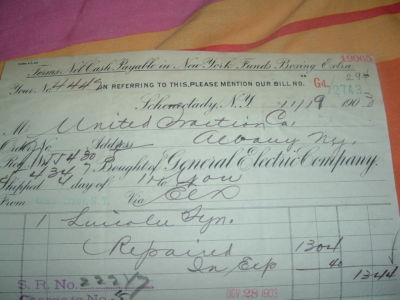 Terms, Net Cash Payable in New York Funds Boxing Extra
19065
Your No. 4449 IN REFERRING TO THIS, PLEASE MENTION OUR BILL NO. G4/72743
298
Schenectady, N.Y. 11/19 1903
M United Traction Co.
Order to Address Albany Ny.
Req
Bought of General Electric Company,
Shipped 4 day of 11 To You
From Via El
1 Lincoln Syn.
Repaired 1304
In Exp 40 1344
S. R. No. 22917
NOV 28 1903